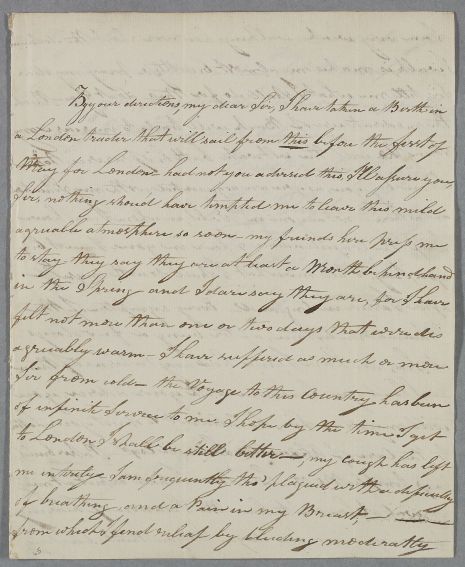 By your directions, my dear Sir, I have taken a Birth in
a London trader that will sail from this before the first of
May for London - had not you advised this, I'll assure you,
Sir, nothing should have tempted me to leave this mild
agreable atmosphere so soon - my friends here press me
to stay they say they are at least a Month behind hand
in the Spring and I dare say they are, for I have
felt not more than one or two days that were dis
agreeably warm - I have suffered as much or more
Sir from cold - the Voyage to this Country has been
of infinite Service to me I hope by the time I get
to London I shall be still better -, my cough has left
me intirely I am frequently tho' plagued with a difficulty
of breathing and a Pain in my Breast, -
from which I find relief by bleeding moderately